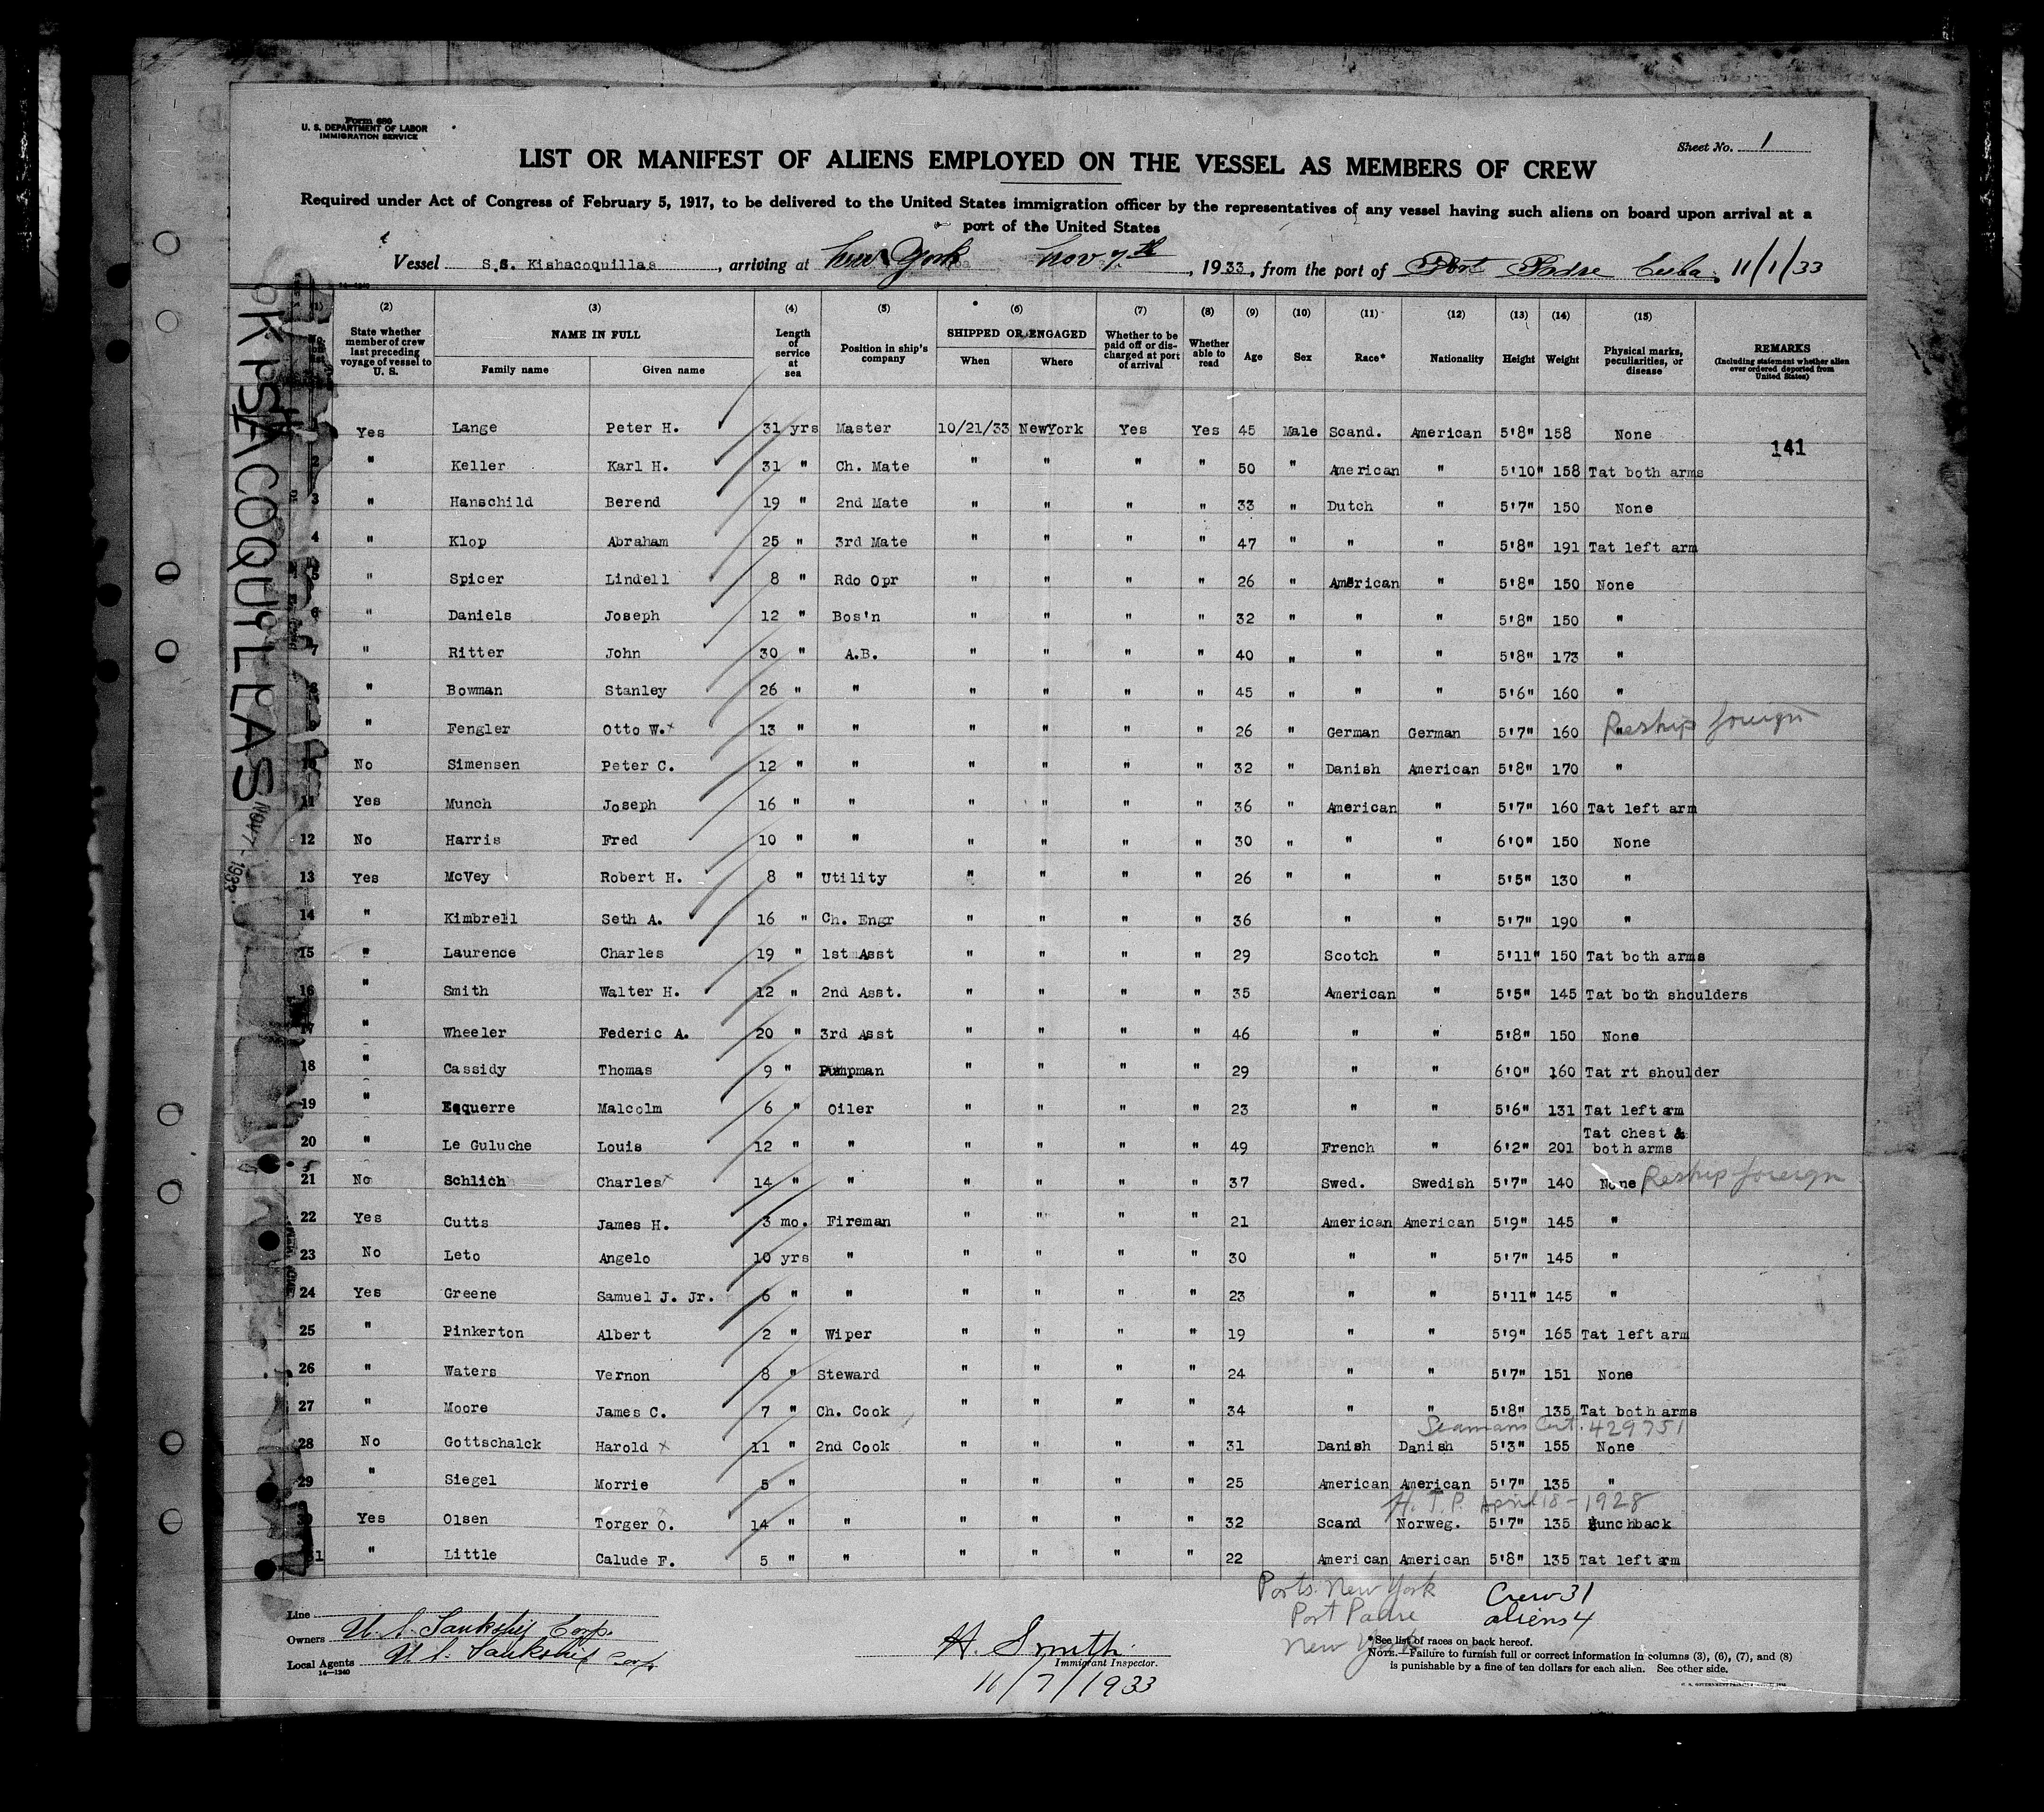 Form 680
U. S. DEPARTMENT OF LABOR
IMMIGRATION SERVICE
Sheet No. 1
LIST OR MANIFEST OF ALIENS EMPLOYED ON THE VESSEL AS MEMBERS OF CREW
Required under Act of Congress of February 5, 1917, to be delivered to the United States immigration officer by the representatives of any vessel having such aliens on board upon arrival at a
port of the United States
Vessel S.S. Kishacoquillas, arriving at New York Nov 7th, 1933, from the port of Port Padre Cuba, 11/1/33
(1) (2) (3) (4) (5) (6) (7) (8) (9) (10) (11) (12) (13) (14) (15)
State whether member of crew last preceding voyage of vessel to U. S. NAME IN FULL Family name Given name Length of service at sea Position in ship's company SHIPPED OR ENGAGED When Where Whether to be paid off or discharged at port of arrival Whether able to read Age Sex Race* Nationality Height Weight Physical marks, peculiarities, or disease REMARKS (Including statement whether alien ever ordered deported from United States)
Yes Lange Peter H. 31 yrs Master 10/21/33 NewYork Yes Yes 45 Male Scand. American 5'8" 158 None
141
2 " Keller Karl H. 31 " Ch. Mate " " " " 50 " American " 5'10" 158 Tat both arms
3 " Hanschild Berend 19 " 2nd Mate " " " " 33 " Dutch " 5'7" 150 None
4 " Klop Abraham 25 " 3rd Mate " " " " 47 " " " 5'8" 191 Tat left arm
5 " Spicer Lindell 8 " Rdo Opr " " " " 26 " American " 5'8" 150 None
6 " Daniels Joseph 12 " Bos'n " " " " 32 " " " 5'8" 150 "
7 " Ritter John 30 " A.B. " " " " 40 " " " 5'8" 173 "
8 " Bowman Stanley 26 " " " " " " 45 " " " 5'6" 160 "
9 " Fengler Otto W. x 13 " " " " " " 26 " German German 5'7" 160 " Reship foreign
10 No Simensen Peter C. 12 " " " " " " 32 " Danish American 5'8" 170 "
11 Yes Munch Joseph 16 " " " " " " 36 " American " 5'7" 160 Tat left arm
12 No Harris Fred 10 " " " " " " 30 " " " 6'0" 150 None
13 Yes McVey Robert H. 8 " Utility " " " " 26 " " " 5'5" 130 "
14 " Kimbrell Seth A. 16 " Ch. Engr " " " " 36 " " 5'7" 190 "
15 " Laurence Charles 19 " 1st Asst " " " " 29 Scotch " 5'11" 150 Tat both arms
16 " Smith Walter H. 12 " 2nd Asst. " " " " 35 American " 5'5" 145 Tat both shoulders
17 " Wheeler Federic A. 20 " 3rd Asst " " " " 46 " " 5'8" 150 None
18 " Cassidy Thomas 9 " Pumpman " " " " 29 " " 6'0" 160 Tat rt shoulder
19 " Esquerre Malcolm 6 " Oiler " " " " 23 " " 5'6" 131 Tat left arm
20 " Le Guluche Louis 12 " " " " " " 49 French " 6'2" 201 Tat chest & both arms
21 No Schlich Charles x 14 " " " " " " 37 Swed. Swedish 5'7" 140 None Reship foreign
22 Yes Cutts James H. 3 mo. Fireman " " " " 21 American American 5'9" 145 "
23 No Leto Angelo 10 yrs " " " " " 30 " " 5'7" 145 "
24 Yes Greene Samuel J. Jr. 6 " " " " " " 23 " " 5'11" 145 "
25 " Pinkerton Albert 2 " Wiper " " " " 19 " " 5'9" 165 Tat left arm
26 " Waters Vernon 8 " Steward " " " " 24 " " 5'7" 151 None
27 " Moore James C. 7 " Ch. Cook " " " " 34 " " 5'8" 135 Tat both arms
Seamans Cert. 429751
28 No Gottschalck Harold x 11 " 2nd Cook " " " " 31 Danish Danish 5'3" 155 None
29 " Siegel Morrie 5 " " " " " 25 American American 5'7" 135 "
H. T. P. April 18 - 1928
30 Yes Olsen Torger O. 14 " " " " " " 32 Scand Norweg. 5'7" 135 Hunchback
31 " Little Calude F. 5 " " " " " " 22 American American 5'8" 135 Tat left arm
Ports New York
Port Padre
New York
Crew 31
aliens 4
Line
Owners U. S. Tankship Corp.
Local Agents U. S. Tankship Corp
14—1240
H. Smith
Immigrant Inspector.
11/7/1933
*See list of races on back hereof.
NOTE.—Failure to furnish full or correct information in columns (3), (6), (7), and (8)
is punishable by a fine of ten dollars for each alien. See other side.
KISHACOQUILLAS
NOV 7 - 1933